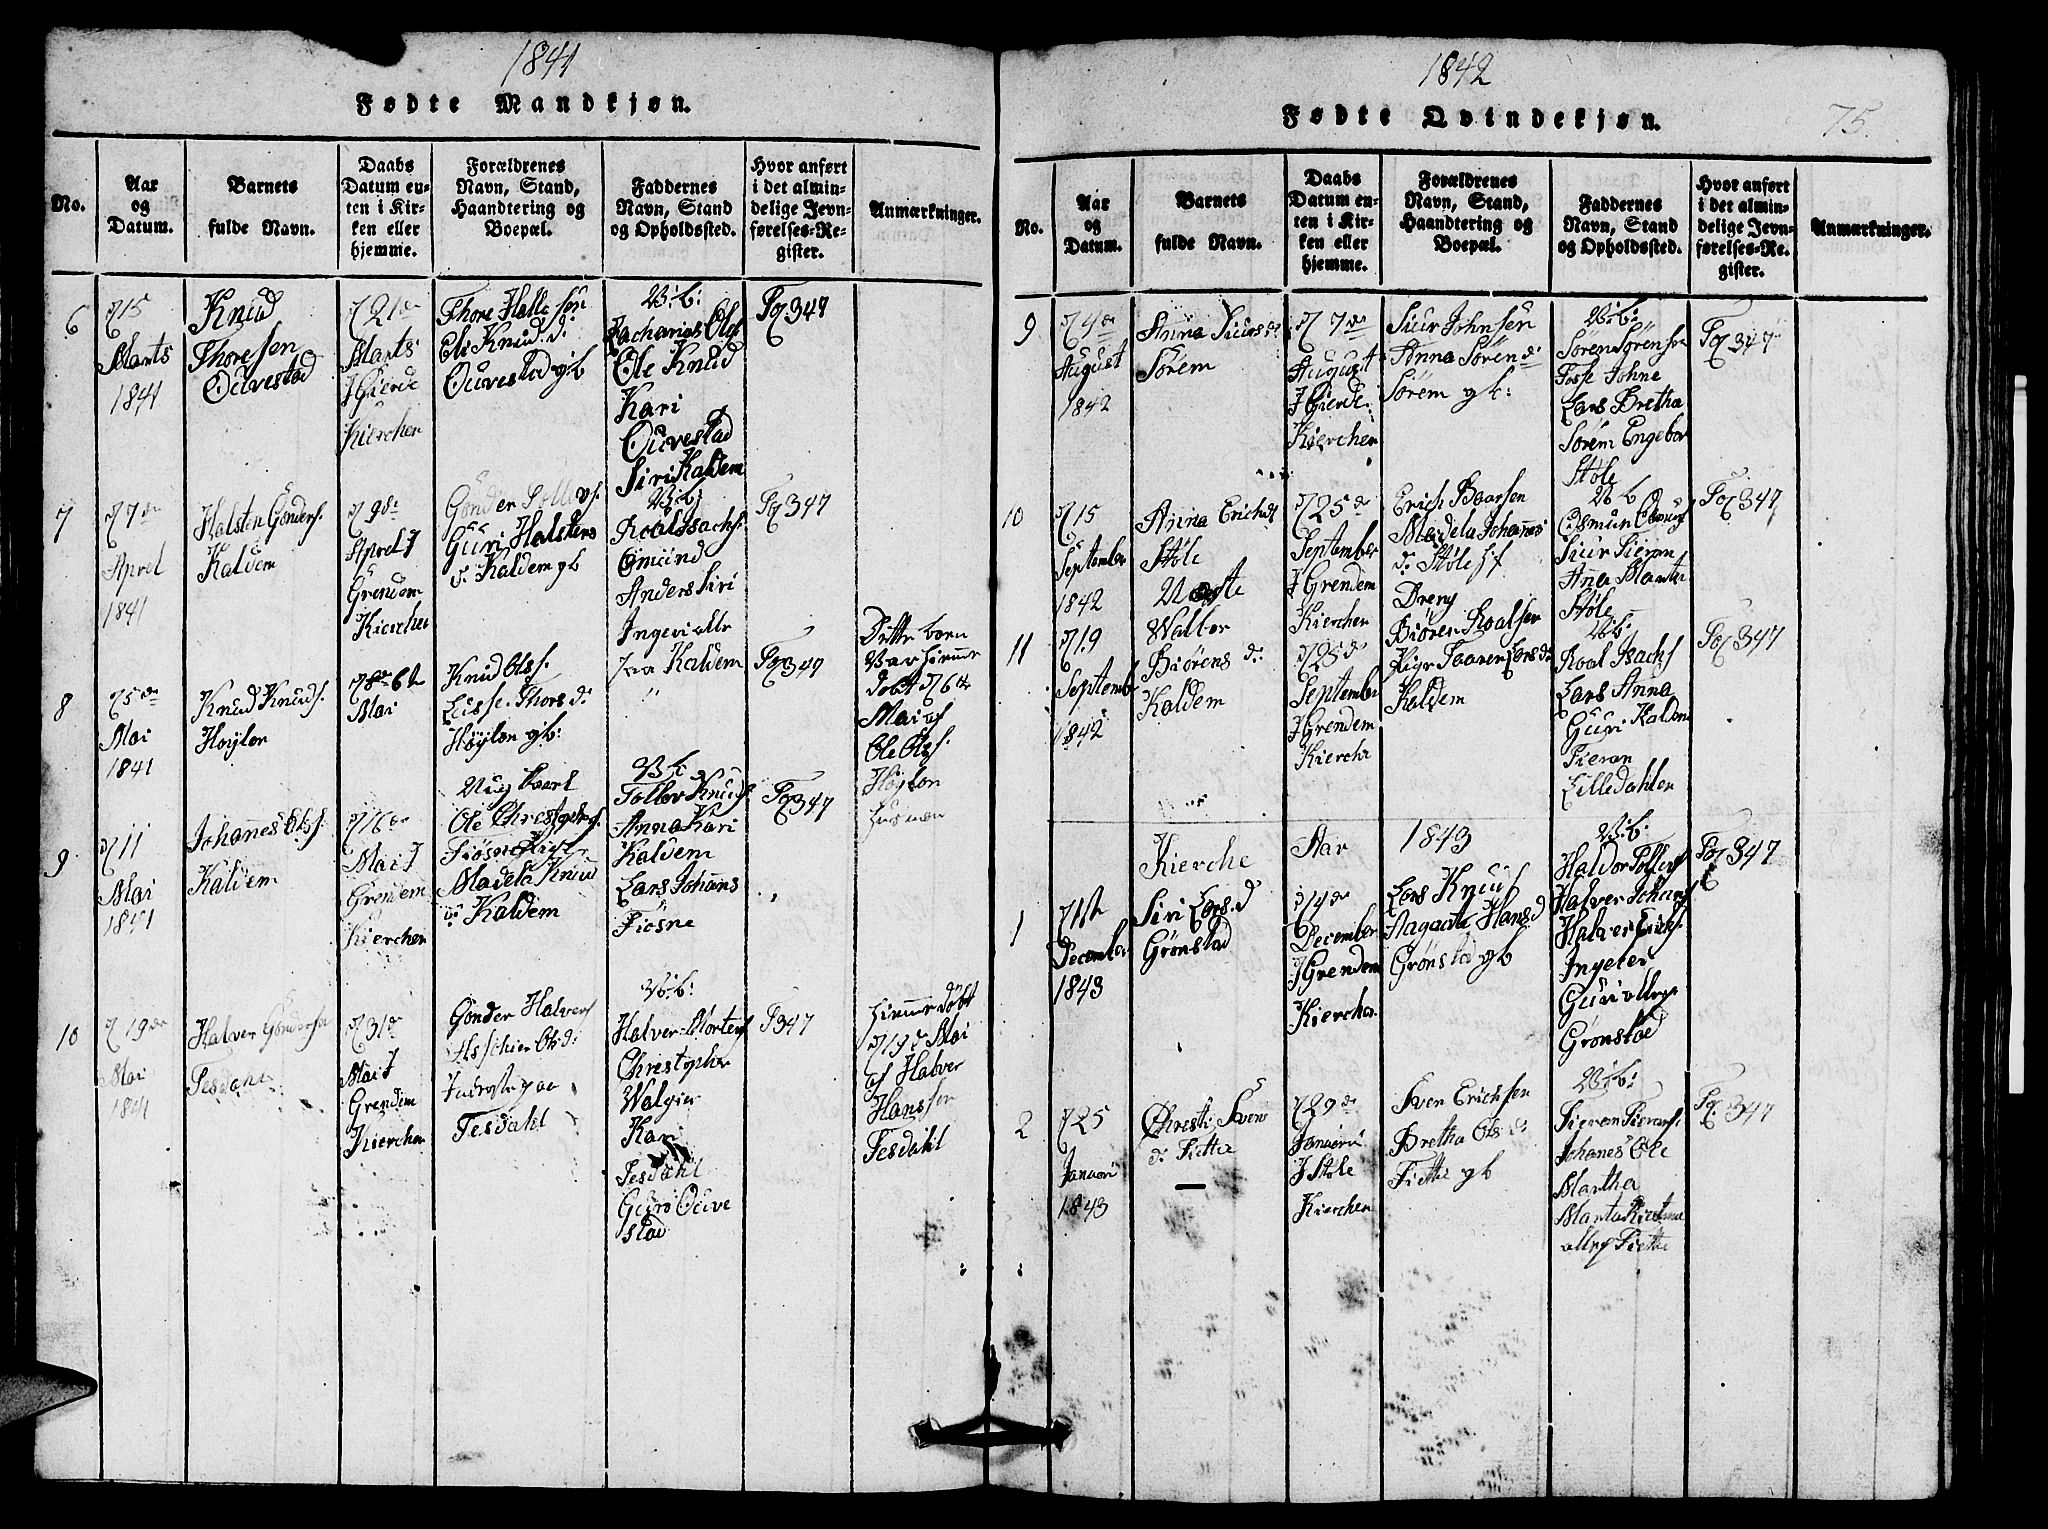 1841
Fødte Mandkjøn.
No.
Aar
og
Datum.
Barnets
fulde Navn.
Daabs
Datum en-
ten i Kir-
ken eller
hjemme.
Forældrenes
Navn, Stand,
Haandtering og
Boepæl.
Faddernes
Navn, Stand
og Opholdssted.
Hvor anført
i det almin-
delige Jevn-
førelses-Re-
gister.
Anmærkninger.
6
15
Marts
1841
Knud
Thoresen
Ouvestad
21de
Marts
I Gierde
Kierchen
Thore Helle søn
Knud d:
Ouvestad gb
V: b:
Zacharias Ols
Ole Knud
Kari
Ouvestad
Siri Kaldem
347
7
7de
Aprel
1841
Halsten Gonders.
Kaldem
9de
Aprel I
Grendem
Kierchen
Gonder Tollevs.
Guri Halstens
d: Kaldem gb
V: b:
Roal Isachs.
Omund
Anders Siri
Ingeri alle
paa Kaldem
347
8
5de
Mai
1841
Knud Knuds.
Høylon
6te
Mai
Knud Ols.
Thors d:
Høylon gb:
"
347
Dette barn
Var hiemme
døbt 6te
Mai af
Ole Ols.
Høylon
husman
9
11
Mai
1841
Johannes Ols.
Kaldem
16de
Mai I
Grendem
Kierchen
Ole
Madela Knud
d: Kaldem
V: b:
Tollev Knuds.
Anna Kari
Kaldem
Lars Johans
Fiosne
347
10
19de
Mai
1841
Halver Gondersen
Tesdahl
31de
Mai I
Grendem
Kierchen
Gonder Halvers
Ols d:
Inderste paa
Tesdahl
V: b:
Halver Mortens
Christopher
Walgier
Kari
Tesdahl
Guro Ouve
stad
347
hiemme døbt
19d Mai
af Halver
Hanssen
Tesdahl
1842
Fødte Qvindekjøn.
75.
No.
Aar
og
Datum.
Barnets
fulde Navn.
Daabs
Datum en-
ten i Kir-
ken eller
hjemme.
Forældrenes
Navn, Stand,
Haandtering og
Boepæl.
Faddernes
Navn, Stand
og Opholdssted.
Hvor anført
i det almin-
delige Jevn-
førelses-Re-
gister.
Anmærkninger.
9
4de
August
1842
Anna Siurs d:
Sørem
7de
August
I Gierde
Kierchen
Siur Johnsen
Anna Søren d:
Sørem gb:
V: b:
Søren Sørensen
Fosse Johne
Lars Bretha
Sørem Engebor
Støle
347
10
15
September
1842
Anna Erichsd
Støle
Neste
25de
September
I Grendem
Kierchen
Erich Baarsen
Madela Johannes
d: Støle
Dreng
V b
Osmun
Siur Sieran
Anna Marta
Støle
347
11
19
Septemb
1842
Walbor
Biørens d:
Kaldem
25de
September
I Grendem
Kierche
Biøren Roalsen
Pige Taaren Lors d:
Kaldem
V: b:
Roal Isachs
Lars Anna
Guri Kaldem
Sieran
Lilledahlen
347
Kierche Aar 1843
1
1ste
December
1843
Siri Lars d
Grønstad
14de
December
I Grendem
Kierchen
Lars Knuds
Aagaata Hans d
Grønstad gb
V: b:
Haldor Tollevs
Halver Johans
Halver Erichs.
Ingelev
Guri alle paa
Grønstad
347
2
25
Januari
1843
Christi Sven
d: Fiette
29de
Januari
I Støle
Kierchen
Sven Erichsen
Bretha Ols d:
Fiette gb
V: b:
Sieran Sierans.
Johanes Ole
Martha
Marta
alle paa Fiette
347